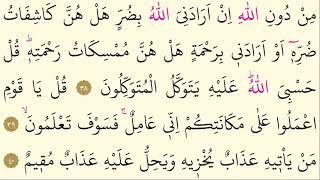 مِنْ دُونِ اللّٰهِ اِنْ اَرَادَنِىَ اللّٰهُ بِضُرٍّ هَلْ هُنَّ كَاشِفَاتُ
ضُرِّه۪ٓ اَوْ اَرَادَن۪ى بِرَحْمَةٍ هَلْ هُنَّ مُمْسِكَاتُ رَحْمَتِه۪ۜ قُلْ
حَسْبِىَ اللّٰهُۜ عَلَيْهِ يَتَوَكَّلُ الْمُتَوَكِّلُونَ ٣٨ قُلْ يَا قَوْمِ
اعْمَلُوا عَلٰى مَكَانَتِكُمْ اِنّ۪ى عَامِلٌۚ فَسَوْفَ تَعْلَمُونَۙ ٣٩
مَنْ يَأْت۪يهِ عَذَابٌ يُخْز۪يهِ وَيَحِلُّ عَلَيْهِ عَذَابٌ مُق۪يمٌ ٤٠